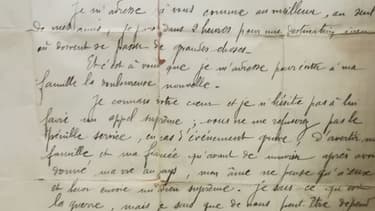 Je m'adresse à vous comme au meilleur, au seul
de mes amis, je pars dans 2 heures pour une destination
où doivent se passer de grandes choses.
Et c'est à vous que je m'adresse pour
famille la douloureuse nouvelle.
Je connais votre cœur et je n'hésite pas à lui
faire un appel suprême; vous ne me refuserez pas le
pénible service, en cas d'événement grave, d'avertir ma
famille et ma fiancée qu'avant de mourir après avoir
donné, ma vie au pays, mon âme ne pense qu'à eux
et leur envoie un adieu suprême. Je sais ce qu'est
la guerre, mais je sais que de nous peut être dépend